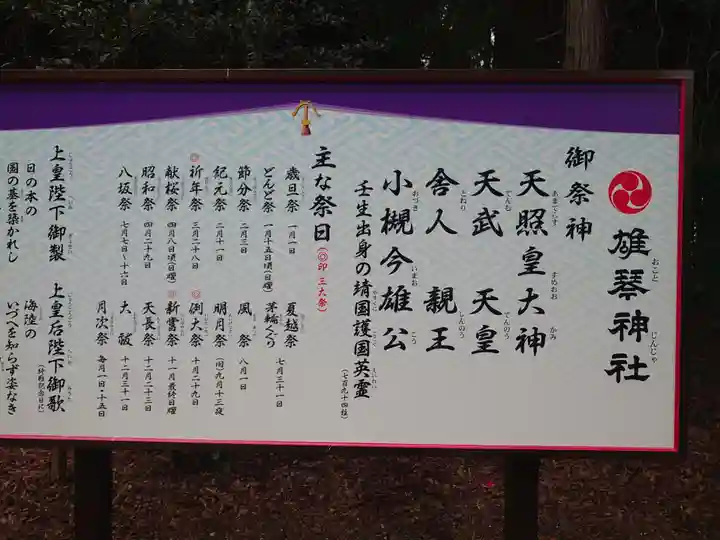 雄琴神社
おごと じんじゃ
御祭神
天照皇大神
あまてらす すめおお かみ
天武 天皇
てんむ てんのう
舎人 親王
とねり しんのう
小槻今雄公
おづき いまお こう
壬生出身の靖国護国英霊
(七百九十四柱)
主な祭日(◎印 三大祭)
歳旦祭 一月一日
どんど祭 一月十五日頃(日曜)
節分祭 二月三日
紀元祭 二月十一日
◎祈年祭 三月二十八日
献桜祭 四月八日頃(日曜)
昭和祭 四月二十九日
八坂祭 七月七日〜十六日
夏越祭 茅輪くぐり 七月三十一日
風祭 八月一日
明月祭 (旧)九月十三夜
◎例大祭 十月二十九日
◎新嘗祭 十一月最終日曜
天長祭 十二月二十三日
大祓 十二月三十一日
月次祭 毎月一日・十五日
上皇陛下御製
日の本の
国の基を築かれし
上皇后陛下御歌
海陸の
いづへを知らず姿なき